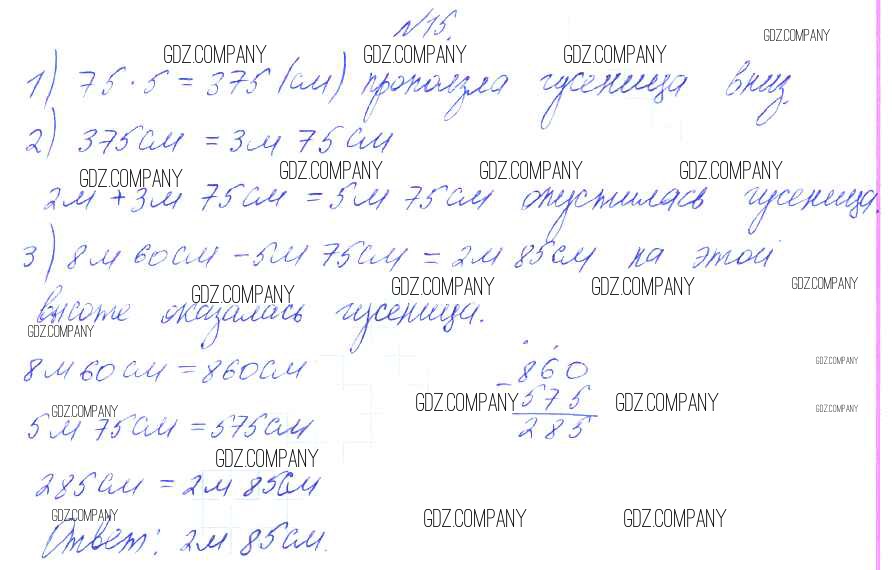 №15.
GDZ.COMPANY
GDZ.COMPANY GDZ.COMPANY GDZ.COMPANY
1) 75 · 5 = 375 (см) проползла гусеница вниз.
2) 375см = 3м 75см
GDZ.COMPANY GDZ.COMPANY GDZ.COMPANY GDZ.COMPANY
2м + 3м 75см = 5м 75см опустилась гусеница.
3) 8м 60см - 5м 75см = 2м 85см на этой
GDZ.COMPANY GDZ.COMPANY GDZ.COMPANY GDZ.COMPANY
высоте оказалась гусеница.
GDZ.COMPANY
8м 60см = 860см
- 860
GDZ.COMPANY
575
GDZ.COMPANY GDZ.COMPANY GDZ.COMPANY GDZ.COMPANY
5м 75см = 575см
285
GDZ.COMPANY
285см = 2м 85см
GDZ.COMPANY GDZ.COMPANY GDZ.COMPANY
Ответ: 2м 85см.